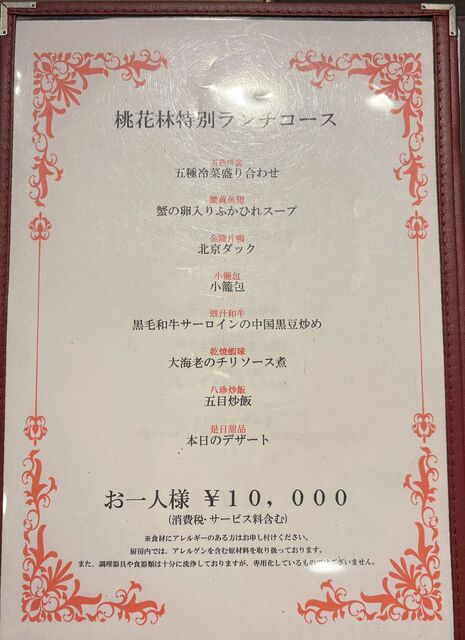 桃花林特別ランチコース
五色拼盆
五種冷菜盛り合わせ
蟹黄魚翅
蟹の卵入りふかひれスープ
金陵片鴨
北京ダック
小籠包
小籠包
豉汁和牛
黒毛和牛サーロインの中国黒豆炒め
乾焼蝦球
大海老のチリソース煮
八珍炒飯
五目炒飯
是日甜品
本日のデザート
お一人様 ￥10，000
(消費税・サービス料含む)
※食材にアレルギーのある方はお申し付けください。
厨房内では、アレルゲンを含む原材料を取り扱っております。
また、調理器具や食器類は十分に洗浄しておりますが、専用化しているものではございません。